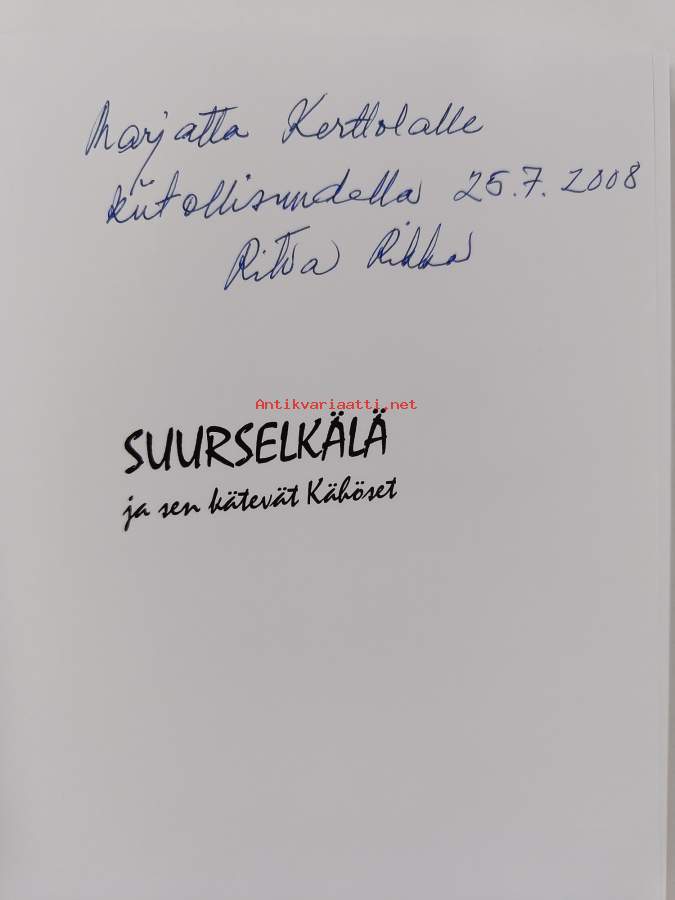 Marjatta Kerttolalle
kiitollisuudella 25.7.2008
Ritva Rikka
Antikvariaatti.net
SUURSELKÄLÄ
ja sen kätevät Kähöset